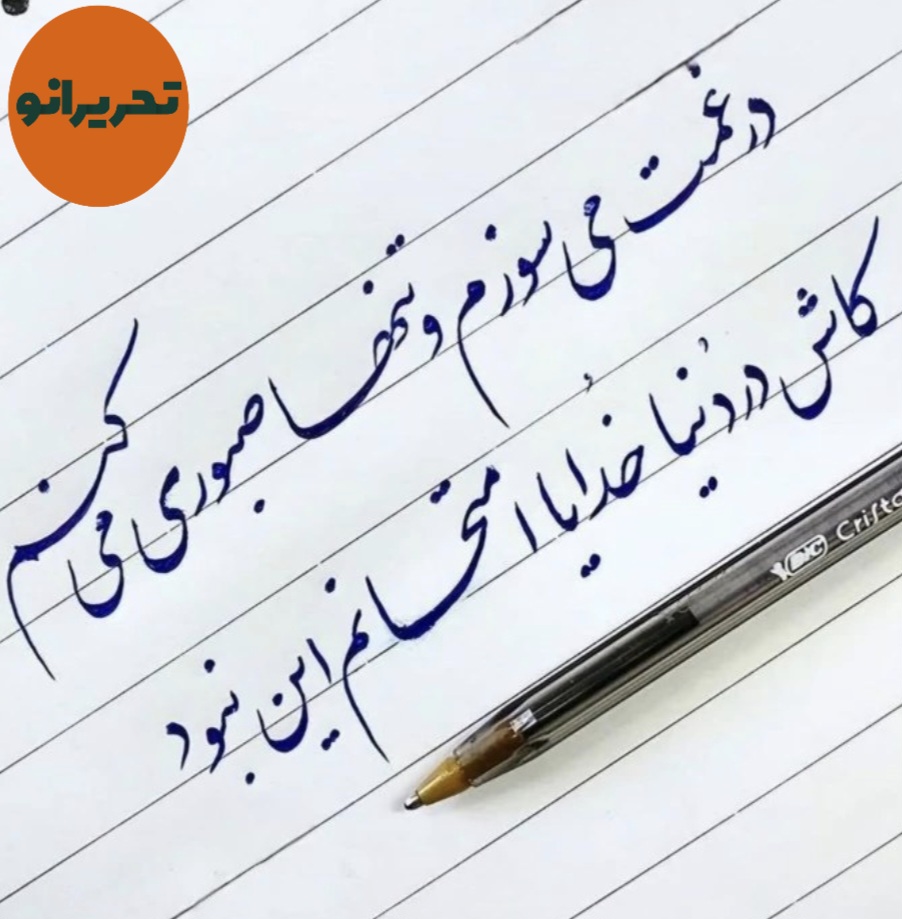 تحریرانو
در غمت می سوزم و تنها صبوری می کنم
کاش در دُنیا خُدایا امتحانم این نبود
BIC Crista